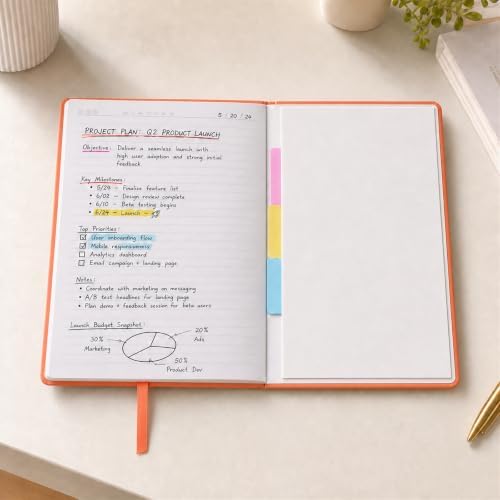 5 / 20 / 24
PROJECT PLAN: Q2 PRODUCT LAUNCH
Objective: Deliver a seamless launch with
high user adoption and strong initial
feedback
Key Milestones:
• 5/29 – Finalize feature list
• 6/03 – Design review complete
• 6/10 – Beta testing begins
• 6/24 – Launch –
Top Priorities:
☑ User onboarding flow
☑ Mobile responsiveness
☐ Analytics dashboard
☐ Email campaign + landing page
Notes:
• Coordinate with marketing on messaging
• A/B test headlines for landing page
• Plan demo + feedback session for beta users
Launch Budget Snapshot:
20%
Ads
30%
Marketing
50%
Product Dev